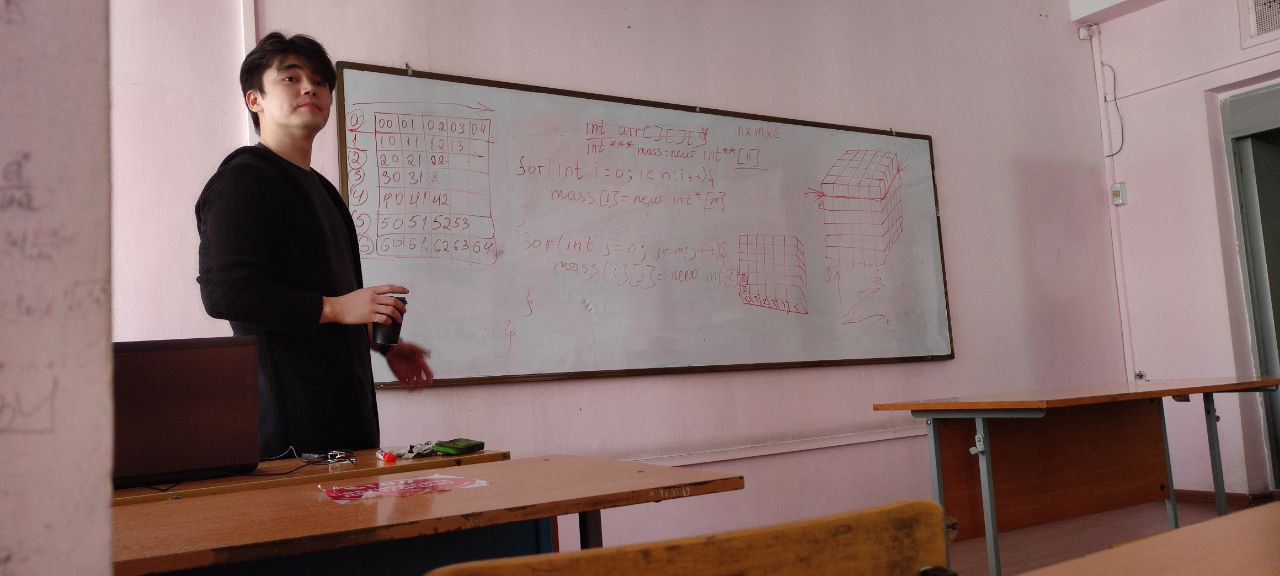 0 00 01 02 03 04
1 10 11 12 13
2 20 21 22
3 30 31
4 40 41 42
5 50 51 52 53
6 60 61 62 63 64
int arr[][][] n×m×l
int*** mass=new int**[n]
for(int i=0; i<n; i++){
mass[i]=new int*[m]
for(int j=0; j<m; j++){
mass[i][j]=new int[
}
}